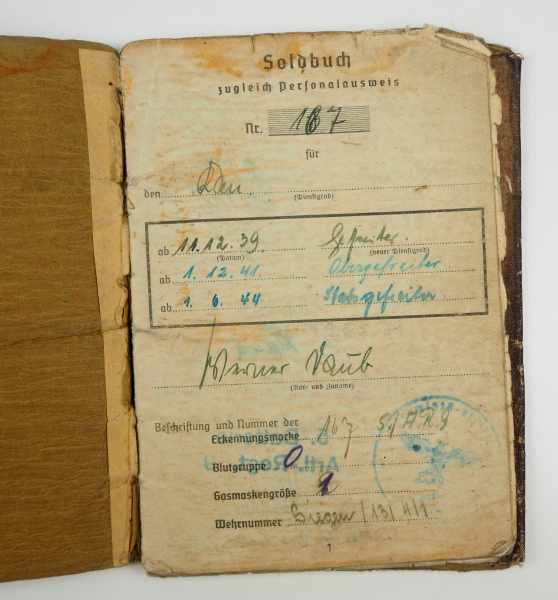 Soldbuch
zugleich Personalausweis
Nr. 167
für
den Kan.
(Dienstgrad)
ab 11.12.39 Gefreiter.
(Datum) (neuer Dienstgrad)
ab 1.12.41 Obergefreiter
ab 1.6.44 Stabsgefreiter
Werner Daub
(Vor- und Zuname)
Beschriftung und Nummer der
Erkennungsmarke 167
Blutgruppe O
Gasmaskengröße
Wehrnummer Siegen
1